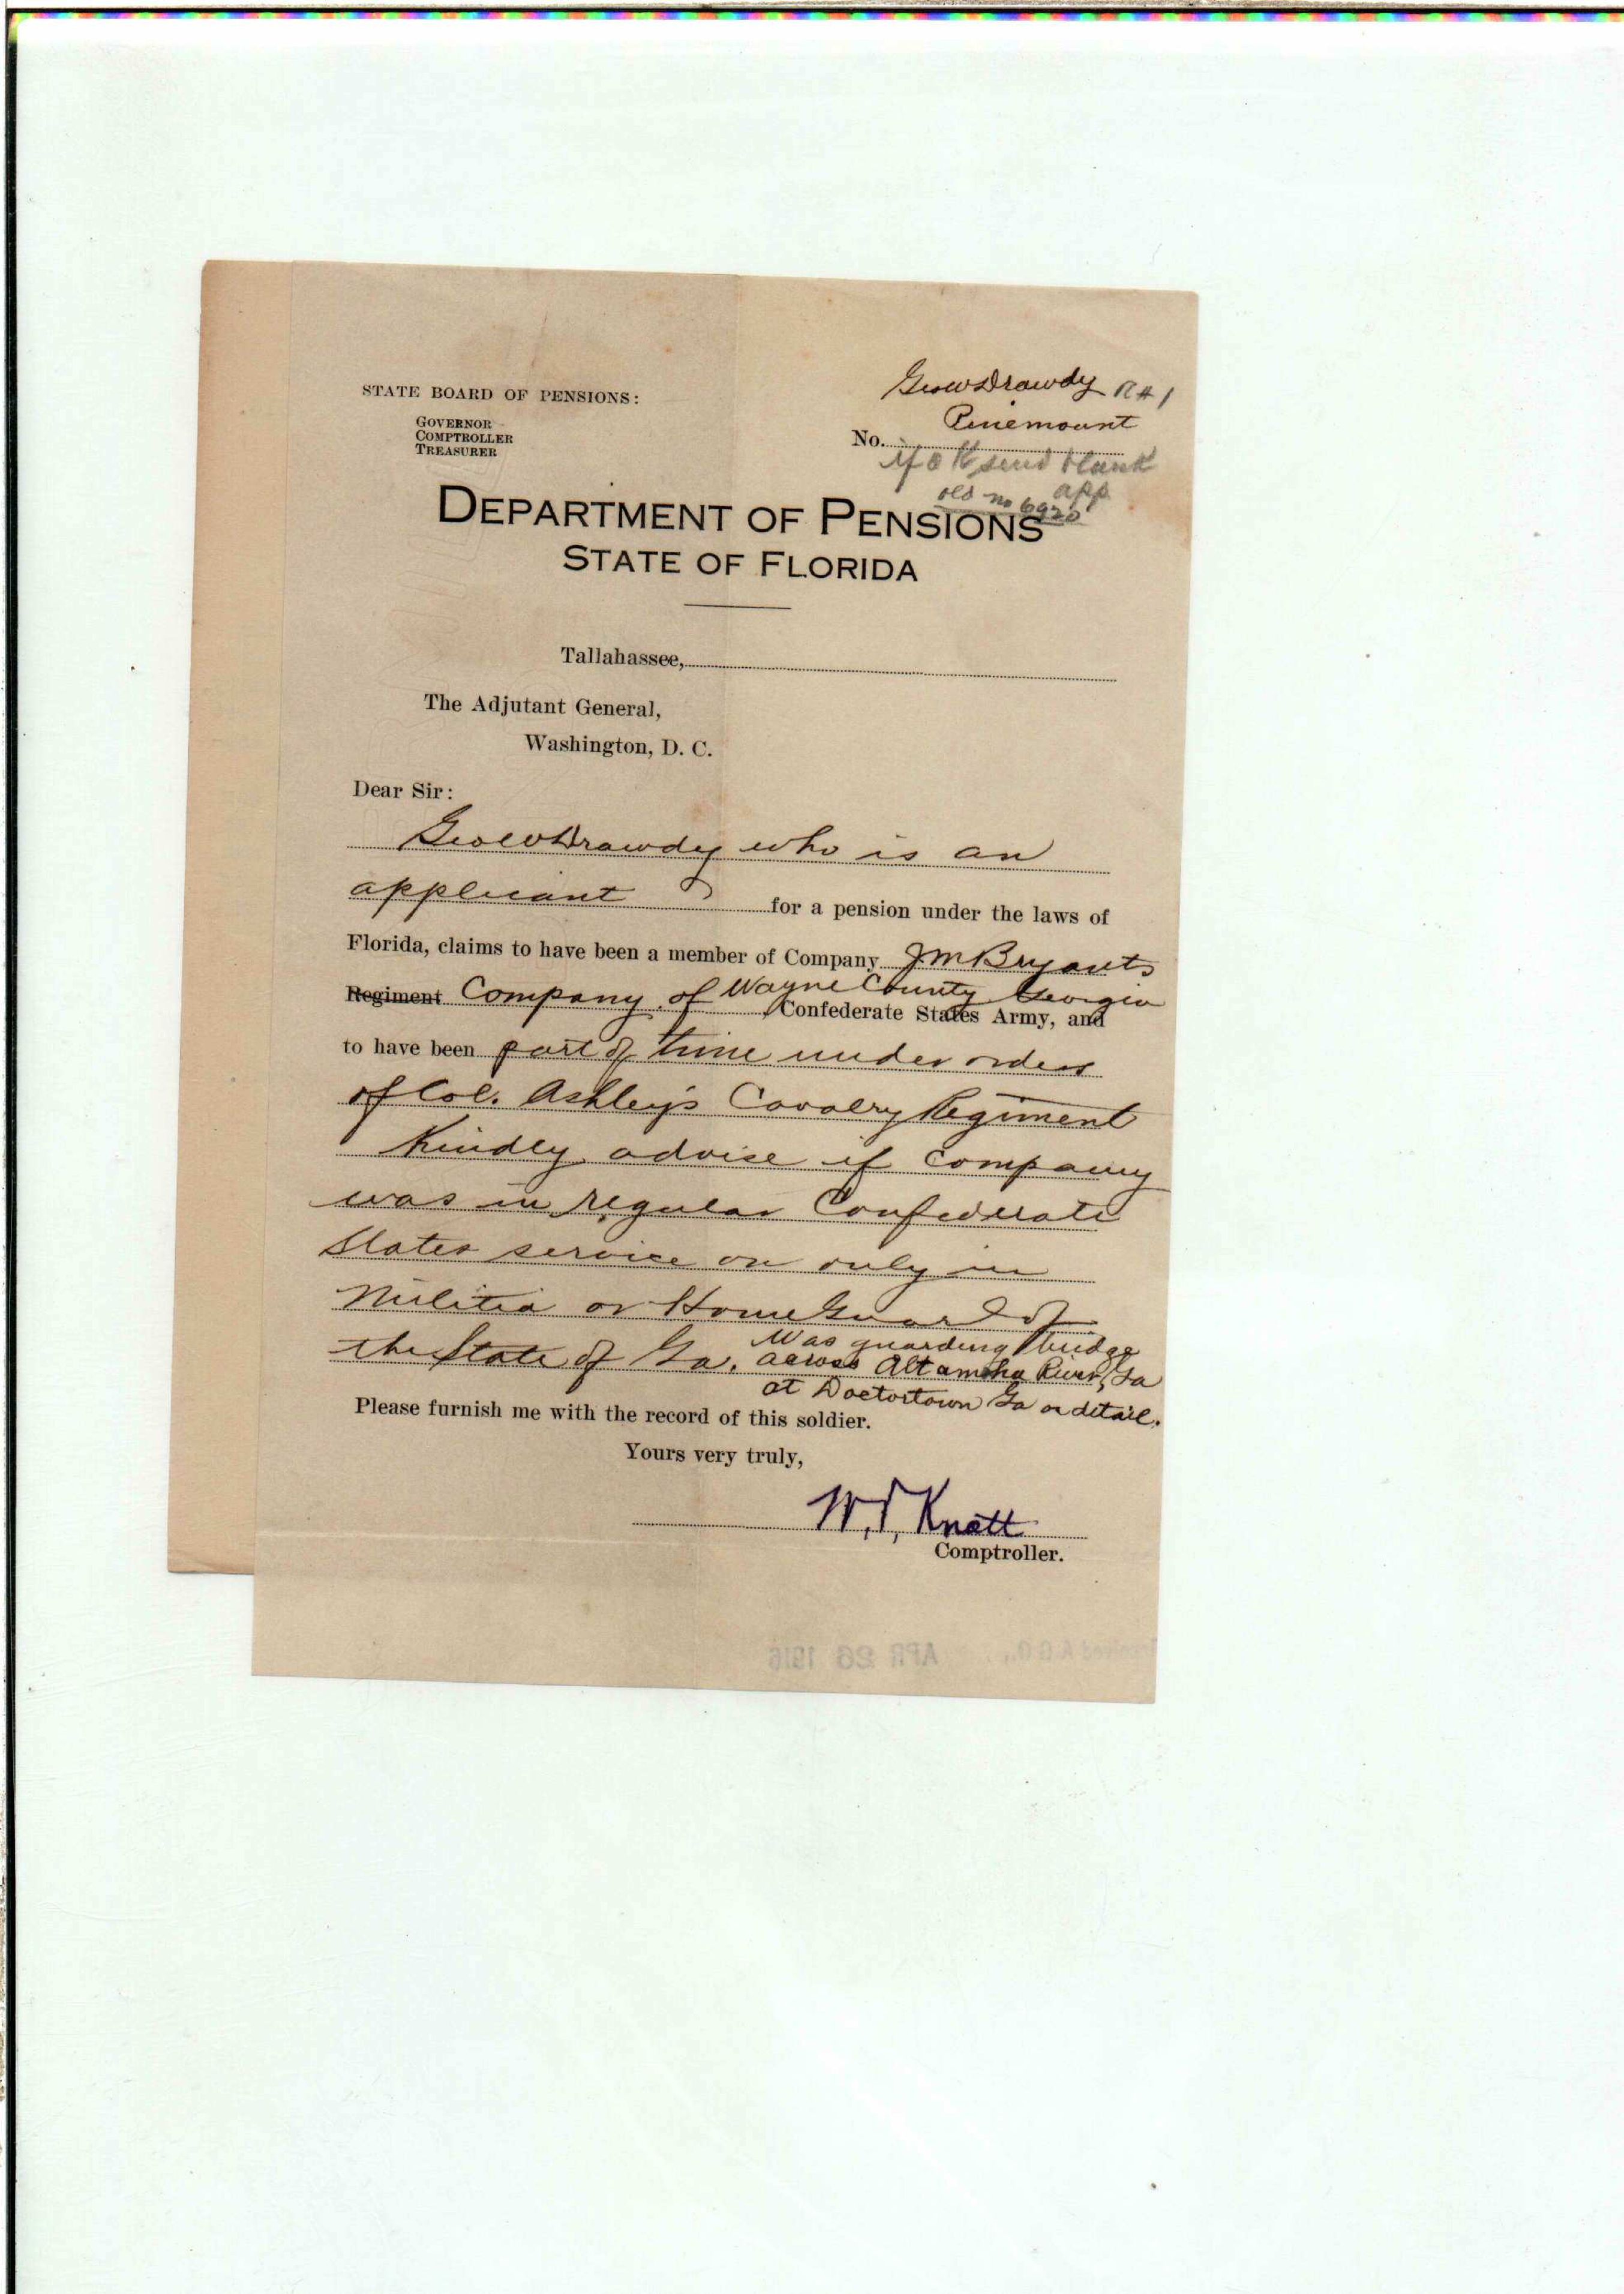 STATE BOARD OF PENSIONS:
GOVERNOR
COMPTROLLER
TREASURER
Geo W Drawdy R#1
Pinemount
No.
if O K send blank
app.
old no 6920
DEPARTMENT OF PENSIONS
STATE OF FLORIDA
Tallahassee,
The Adjutant General,
Washington, D. C.
Dear Sir:
Geo W Drawdy who is an
applicant for a pension under the laws of
Florida, claims to have been a member of Company J M Bryants
Regiment Company of Wayne County Georgia
Confederate States Army, and
to have been part of time under orders
of Col. Ashley's Cavalry Regiment
Kindly advise if company
was in regular Confederate
States service or only in
Militia or Home Guard of
the State of Ga. Was guarding bridge
across Altamaha River, Ga
at Doctortown Ga on detail.
Please furnish me with the record of this soldier.
Yours very truly,
W. V. Knott
Comptroller.
Received A.G.O. APR 26 1916